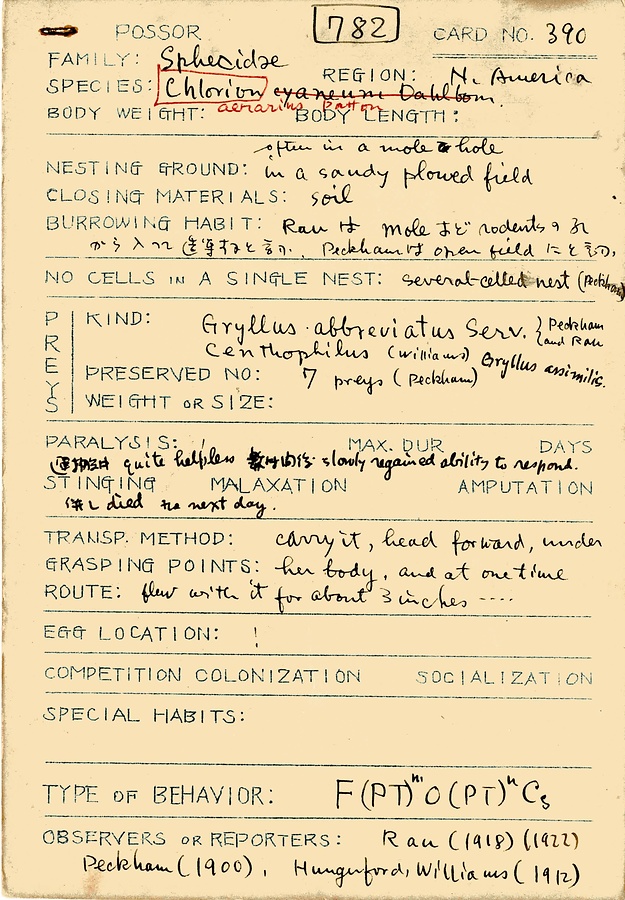 POSSOR 782 CARD NO. 390
FAMILY: Sphecidae
REGION: N. America
SPECIES: Chlorion cyaneum Dahlbom.
aerarius Patton
BODY WEIGHT: BODY LENGTH:
often in a mole hole
NESTING GROUND: in a sandy plowed field
CLOSING MATERIALS: soil
BURROWING HABIT: Rau は mole など rodents の孔
から入って すると言い. Peckham は open field にと言う.
NO CELLS IN A SINGLE NEST: several-celled nest (Peckham)
PREYS
KIND: Gryllus abbreviatus Serv. } Peckham and Rau
Centhophilus (Williams) Gryllus assimilis.
PRESERVED NO: 7 preys (Peckham)
WEIGHT OR SIZE:
PARALYSIS: MAX. DUR DAYS
quite helpless slowly regained ability to respond.
STINGING MALAXATION AMPUTATION
died next day.
TRANSP. METHOD: carry it, head forward, under
GRASPING POINTS: her body, and at one time
ROUTE: flew with it for about 3 inches ....
EGG LOCATION: !
COMPETITION COLONIZATION SOCIALIZATION
SPECIAL HABITS:
TYPE OF BEHAVIOR: F(PT)ᵐO(PT)ⁿCs
OBSERVERS OR REPORTERS: Rau (1918) (1922)
Peckham (1900), Hungerford, Williams (1912)